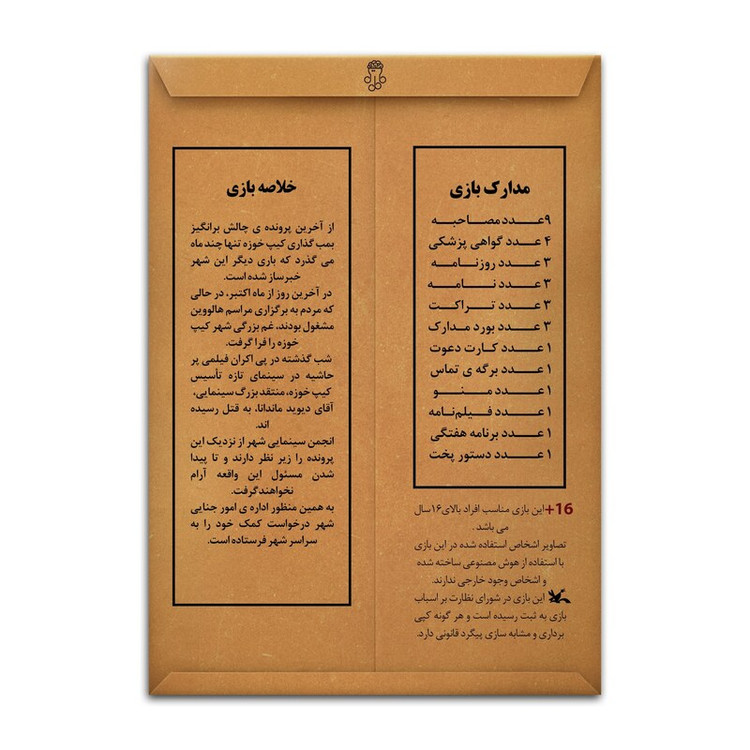 مدارک بازی
۹ عدد مصاحبه
۴ عدد گواهی پزشکی
۳ عدد روزنامه
۳ عدد نامه
۳ عدد تراکت
۳ عدد بورد مدارک
۱ عدد کارت دعوت
۱ عدد برگه ی تماس
۱ عدد منو
۱ عدد فیلم‌نامه
۱ عدد برنامه هفتگی
۱ عدد دستور پخت
+16 این بازی مناسب افراد بالای ۱۶ سال
می باشد .
تصاویر اشخاص استفاده شده در این بازی
با استفاده از هوش مصنوعی ساخته شده
و اشخاص وجود خارجی ندارند.
این بازی در شورای نظارت بر اسباب
بازی به ثبت رسیده است و هر گونه کپی
برداری و مشابه سازی پیگرد قانونی دارد.
خلاصه بازی
از آخرین پرونده ی چالش برانگیز
بمب گذاری کیپ خوزه تنها چند ماه
می گذرد که باری دیگر این شهر
خبرساز شده است.
در آخرین روز از ماه اکتبر، در حالی
که مردم به برگزاری مراسم هالووین
مشغول بودند، غم بزرگی شهر کیپ
خوزه را فرا گرفت.
شب گذشته در پی اکران فیلمی پر
حاشیه در سینمای تازه تأسیس
کیپ خوزه، منتقد بزرگ سینمایی،
آقای دیوید ماندانا، به قتل رسیده
اند.
انجمن سینمایی شهر از نزدیک این
پرونده را زیر نظر دارند و تا پیدا
شدن مسئول این واقعه آرام
نخواهند گرفت.
به همین منظور اداره ی امور جنایی
شهر درخواست کمک خود را به
سراسر شهر فرستاده است.